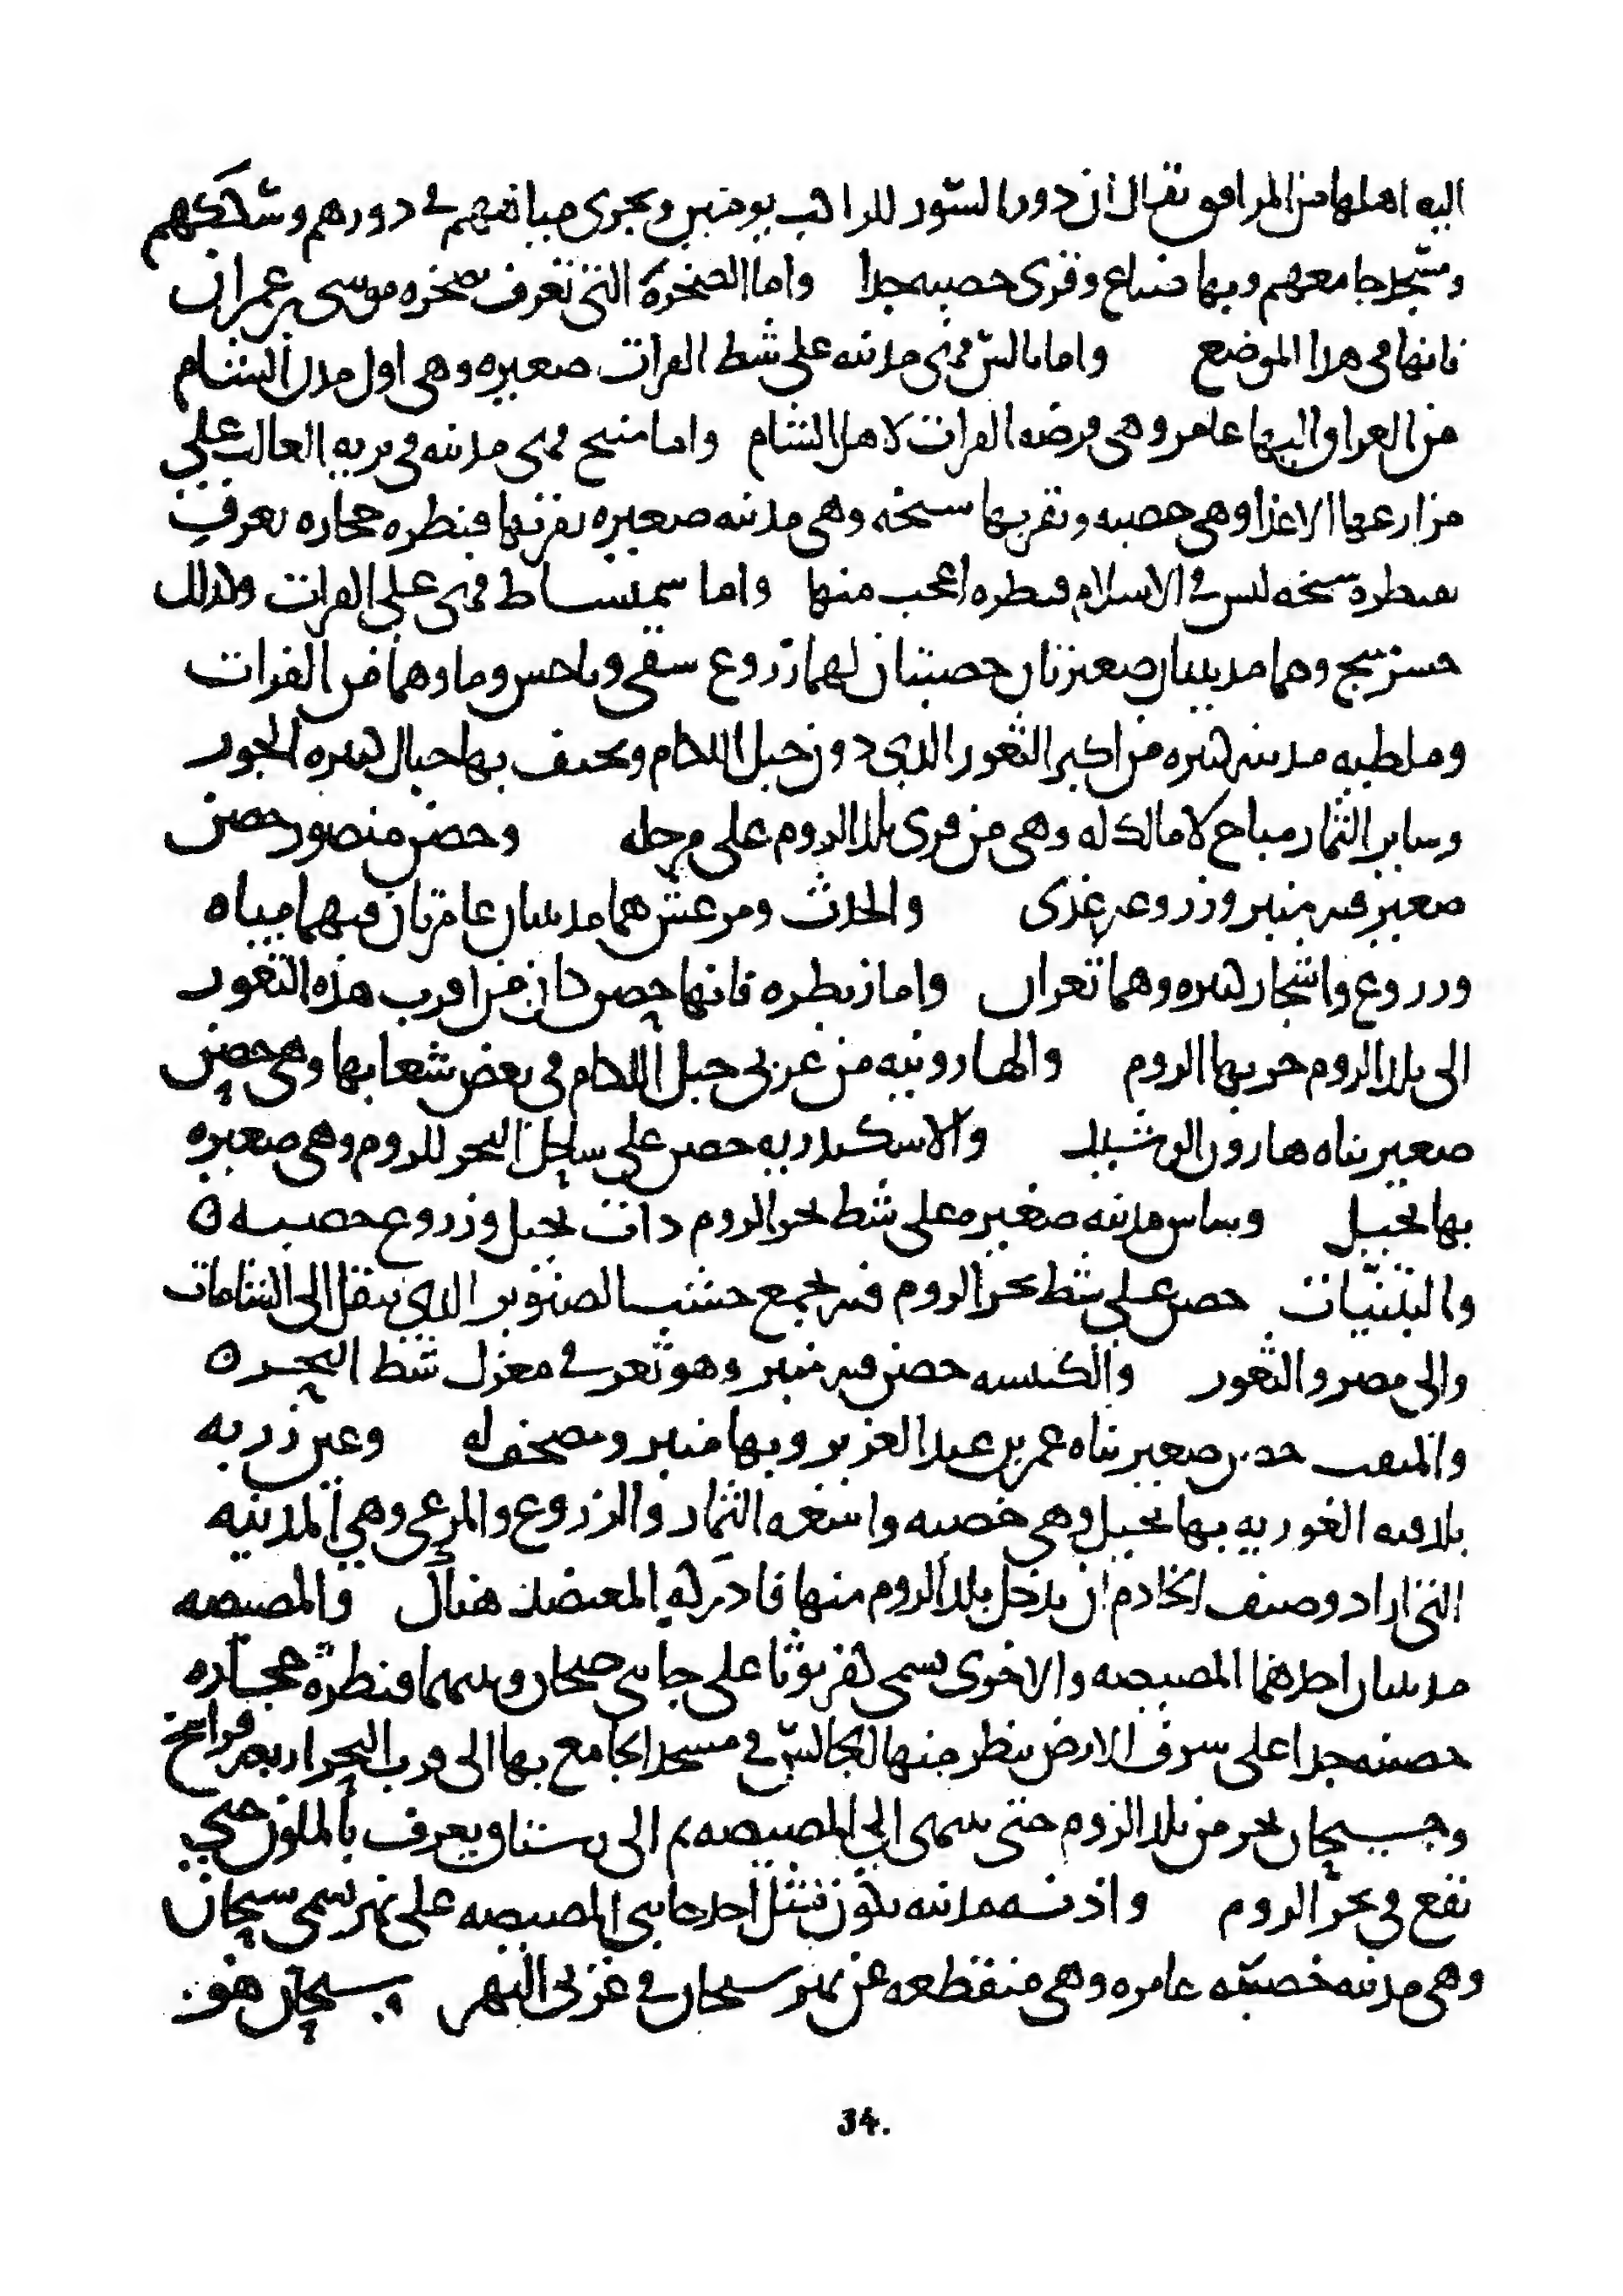 اليه اهلها من المرافق يقال ان دور السور للراهب يومين ويجرى مياههم في دورهم وسككهم
ومسجد جامعهم وبها ضياع وقرى خصبه جدا واما الصخرة التي تعرف بصخره موسى بن عمران
فانها في هذا الموضع واما بالس فهى مدينه على شط الفرات صغيره وهى اول مدن الشام
من العراق اليها عامر وهى فرضه الفرات لاهل الشام واما منبج فهى مدينه في بريه الغالب على
مزارعها الاعذا وهى خصبه وبقربها سنجه وهى مدينه صغيره بقربها قنطره حجاره تعرف
بقنطرة سنجه ليس في الاسلام قنطره اعجب منها واما سميساط فهى على الفرات وكذلك
جسر منبج وهما مدينتان صغيرتان خصبتان لهما زروع سقى وباخس وماوهما من الفرات
وملطيه مدينه كبيره من اكبر الثغور الذى دون جبل اللكام ويحتف بها جبال كثيره الجوز
وساير الثمار مباح لا مالك له وهى من قرى بلد الروم على مرحله وحصن منصور حصن
صغير فيه منبر وزروعه عذى والحدث ومرعش هما مدينتان عامرتان فيهما مياه
وزروع واشجار كثيره وهما ثغران واما زبطره فانها حصن كان من اقرب هذه الثغور
الى بلد الروم خربها الروم والهارونيه من غربى جبل اللكام في بعض شعابها وهى حصن
صغير بناه هارون الرشيد والاسكندريه حصن على ساحل البحر للروم وهى صغيره
بها نخيل وبياس مدينه صغيره على شط بحر الروم ذات نخيل وزروع خصبه ه
والتينات حصن على شط بحر الروم فيه مجمع خشب الصنوبر الذى ينقل الى الشامات
والى مصر والثغور والكنيسه حصن فيه منبر وهو ثغر في معزل شط البحر ه
والمثقب حصن صغير بناه عمر بن عبد العزيز وبها منبر ومصحف له وعين زربه
بلد فيه الغوريه بها نخيل وهى خصبه واسعه الثمار والزروع والمرعى وهى المدينه
التي اراد وصيف الخادم ان يدخل بلد الروم منها فادركه المعتضد هناك والمصيصه
مدينتان احدهما المصيصه والاخرى تسمى كفربوثا على جانبى جيحان وبينهما قنطرة حجاره
حصينه جدا على شرف الارض ينظر منها الجالس في مسجد الجامع بها الى قرب البحر اربعه فراسخ
وجيحان يخرج من بلد الروم حتى ينتهى الى المصيصه ثم الى رستاق يعرف بالملون حتى
تقع في بحر الروم واذنه مدينه تكون مثل احد جانبى المصيصه على نهر يسمى سيحان
وهى مدينه خصيبه عامره وهى منقطعه عن نهر سيحان في غربى النهر وسيحان هو
34.